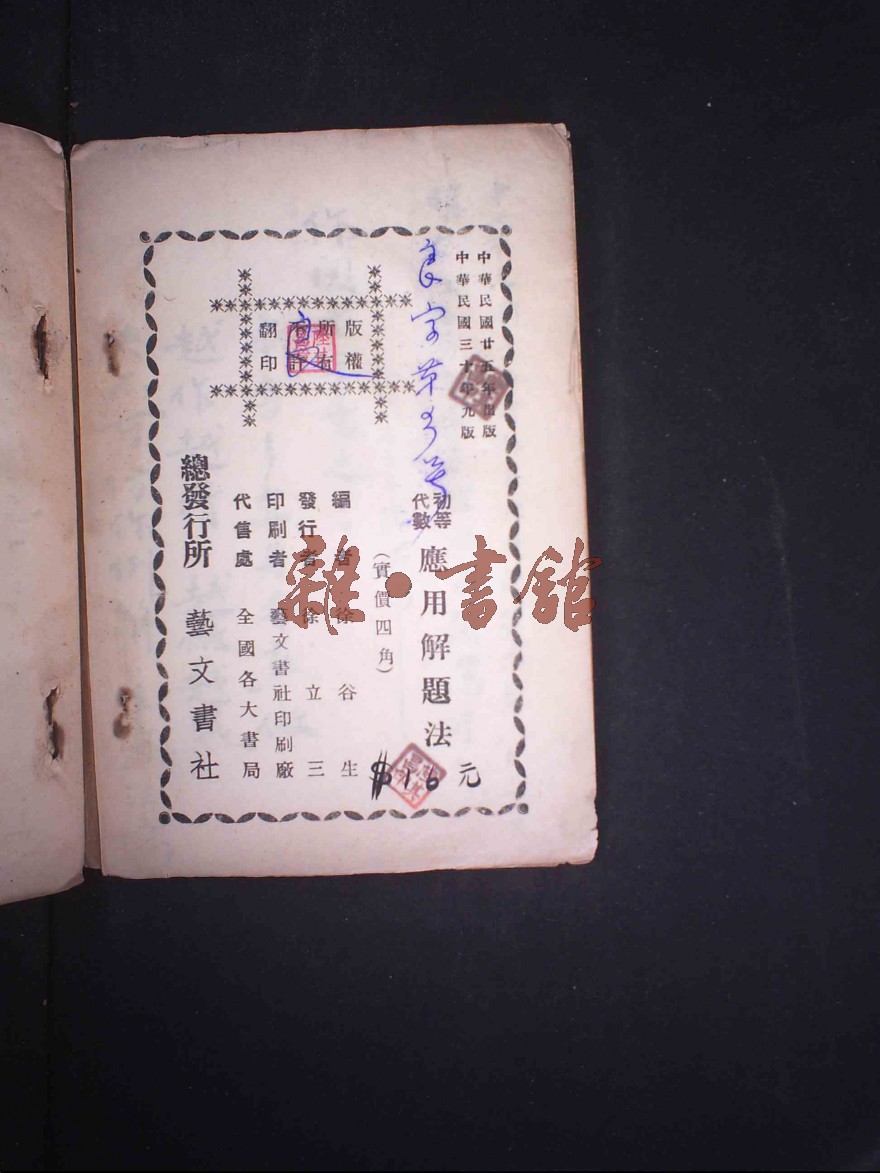 中華民國廿五年出版
中華民國三十年九版
初等代數 應用解題法
(實價四角)
$16元
編者 徐谷生
發行者 徐立三
印刷者 藝文書社印刷廠
代售處 全國各大書局
總發行所 藝文書社
版權所有
不許翻印
雜·書館